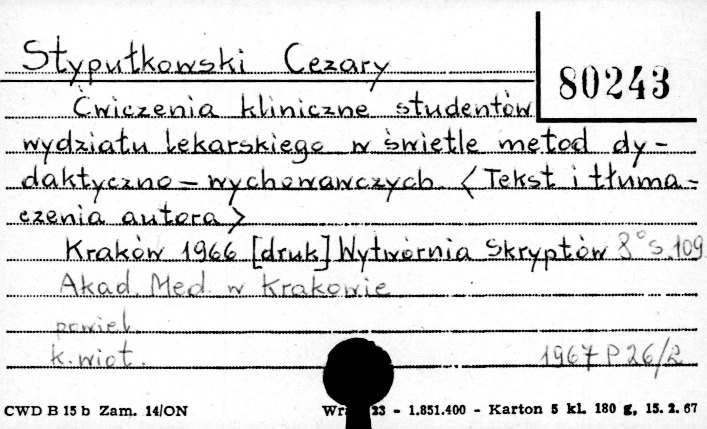 Styputkowski Cezary
80243
Ćwiczenia kliniczne studentów
wydziału lekarskiego w świetle metod dy-
daktyczno-wychowawczych. <Tekst i tłuma-
czenia autora>
Kraków 1966 [druk] Wytwórnia Skryptów 8° s. 109
Akad. Med. w Krakowie
powiel.
k. wiot. 1967 P 26/2
CWD B 15 b Zam. 14/ON 23 - 1.851.400 - Karton 5 kl. 180 g, 15. 2. 67